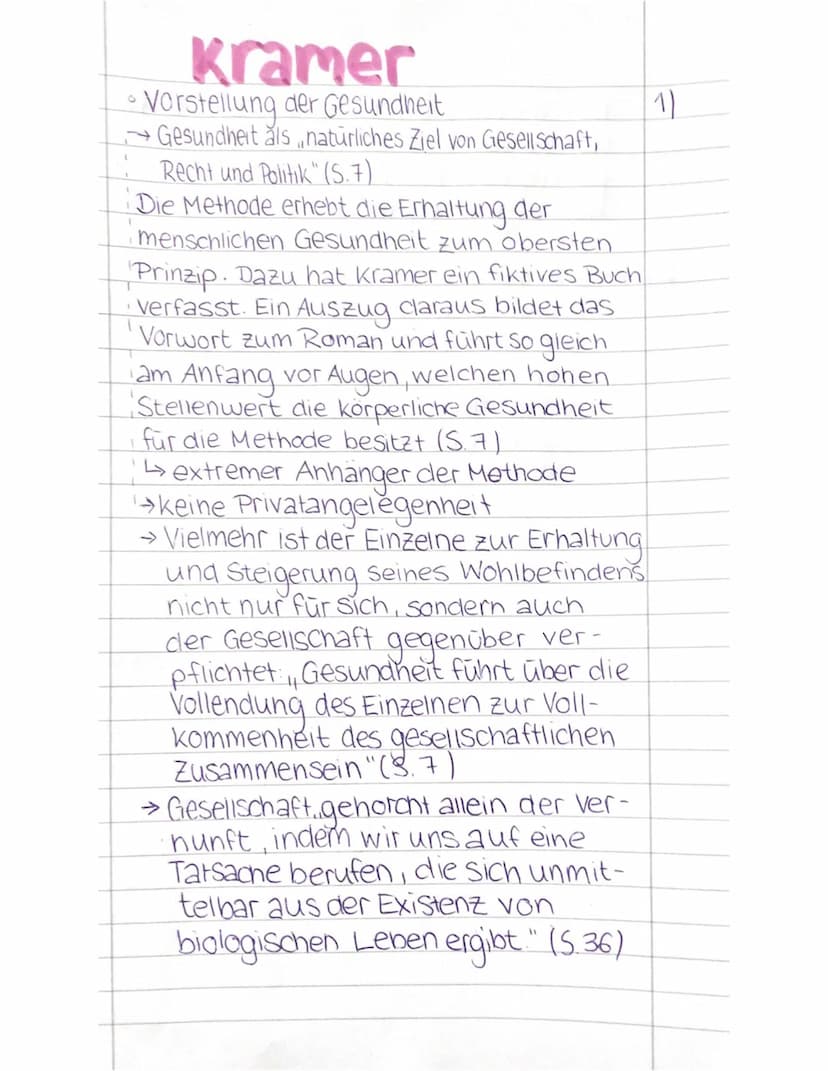 Kramer
° Vorstellung der Gesundheit 1)
→ Gesundheit als „natürliches Ziel von Gesellschaft,
Recht und Politik" (S.7)
Die Methode erhebt die Erhaltung der
menschlichen Gesundheit zum obersten
Prinzip. Dazu hat Kramer ein fiktives Buch
verfasst. Ein Auszug daraus bildet das
Vorwort zum Roman und führt so gleich
am Anfang vor Augen, welchen hohen
Stellenwert die körperliche Gesundheit
für die Methode besitzt (S.7)
↳ extremer Anhänger der Methode
→ keine Privatangelegenheit
→ Vielmehr ist der Einzelne zur Erhaltung
und Steigerung seines Wohlbefindens
nicht nur für sich, sondern auch
der Gesellschaft gegenüber ver-
pflichtet: „Gesundheit führt über die
Vollendung des Einzelnen zur Voll-
kommenheit des gesellschaftlichen
Zusammensein" (S.7)
→ Gesellschaft „gehorcht allein der Ver-
nunft, indem wir uns auf eine
Tatsache berufen, die sich unmit-
telbar aus der Existenz von
biologischen Leben ergibt." (S.36)